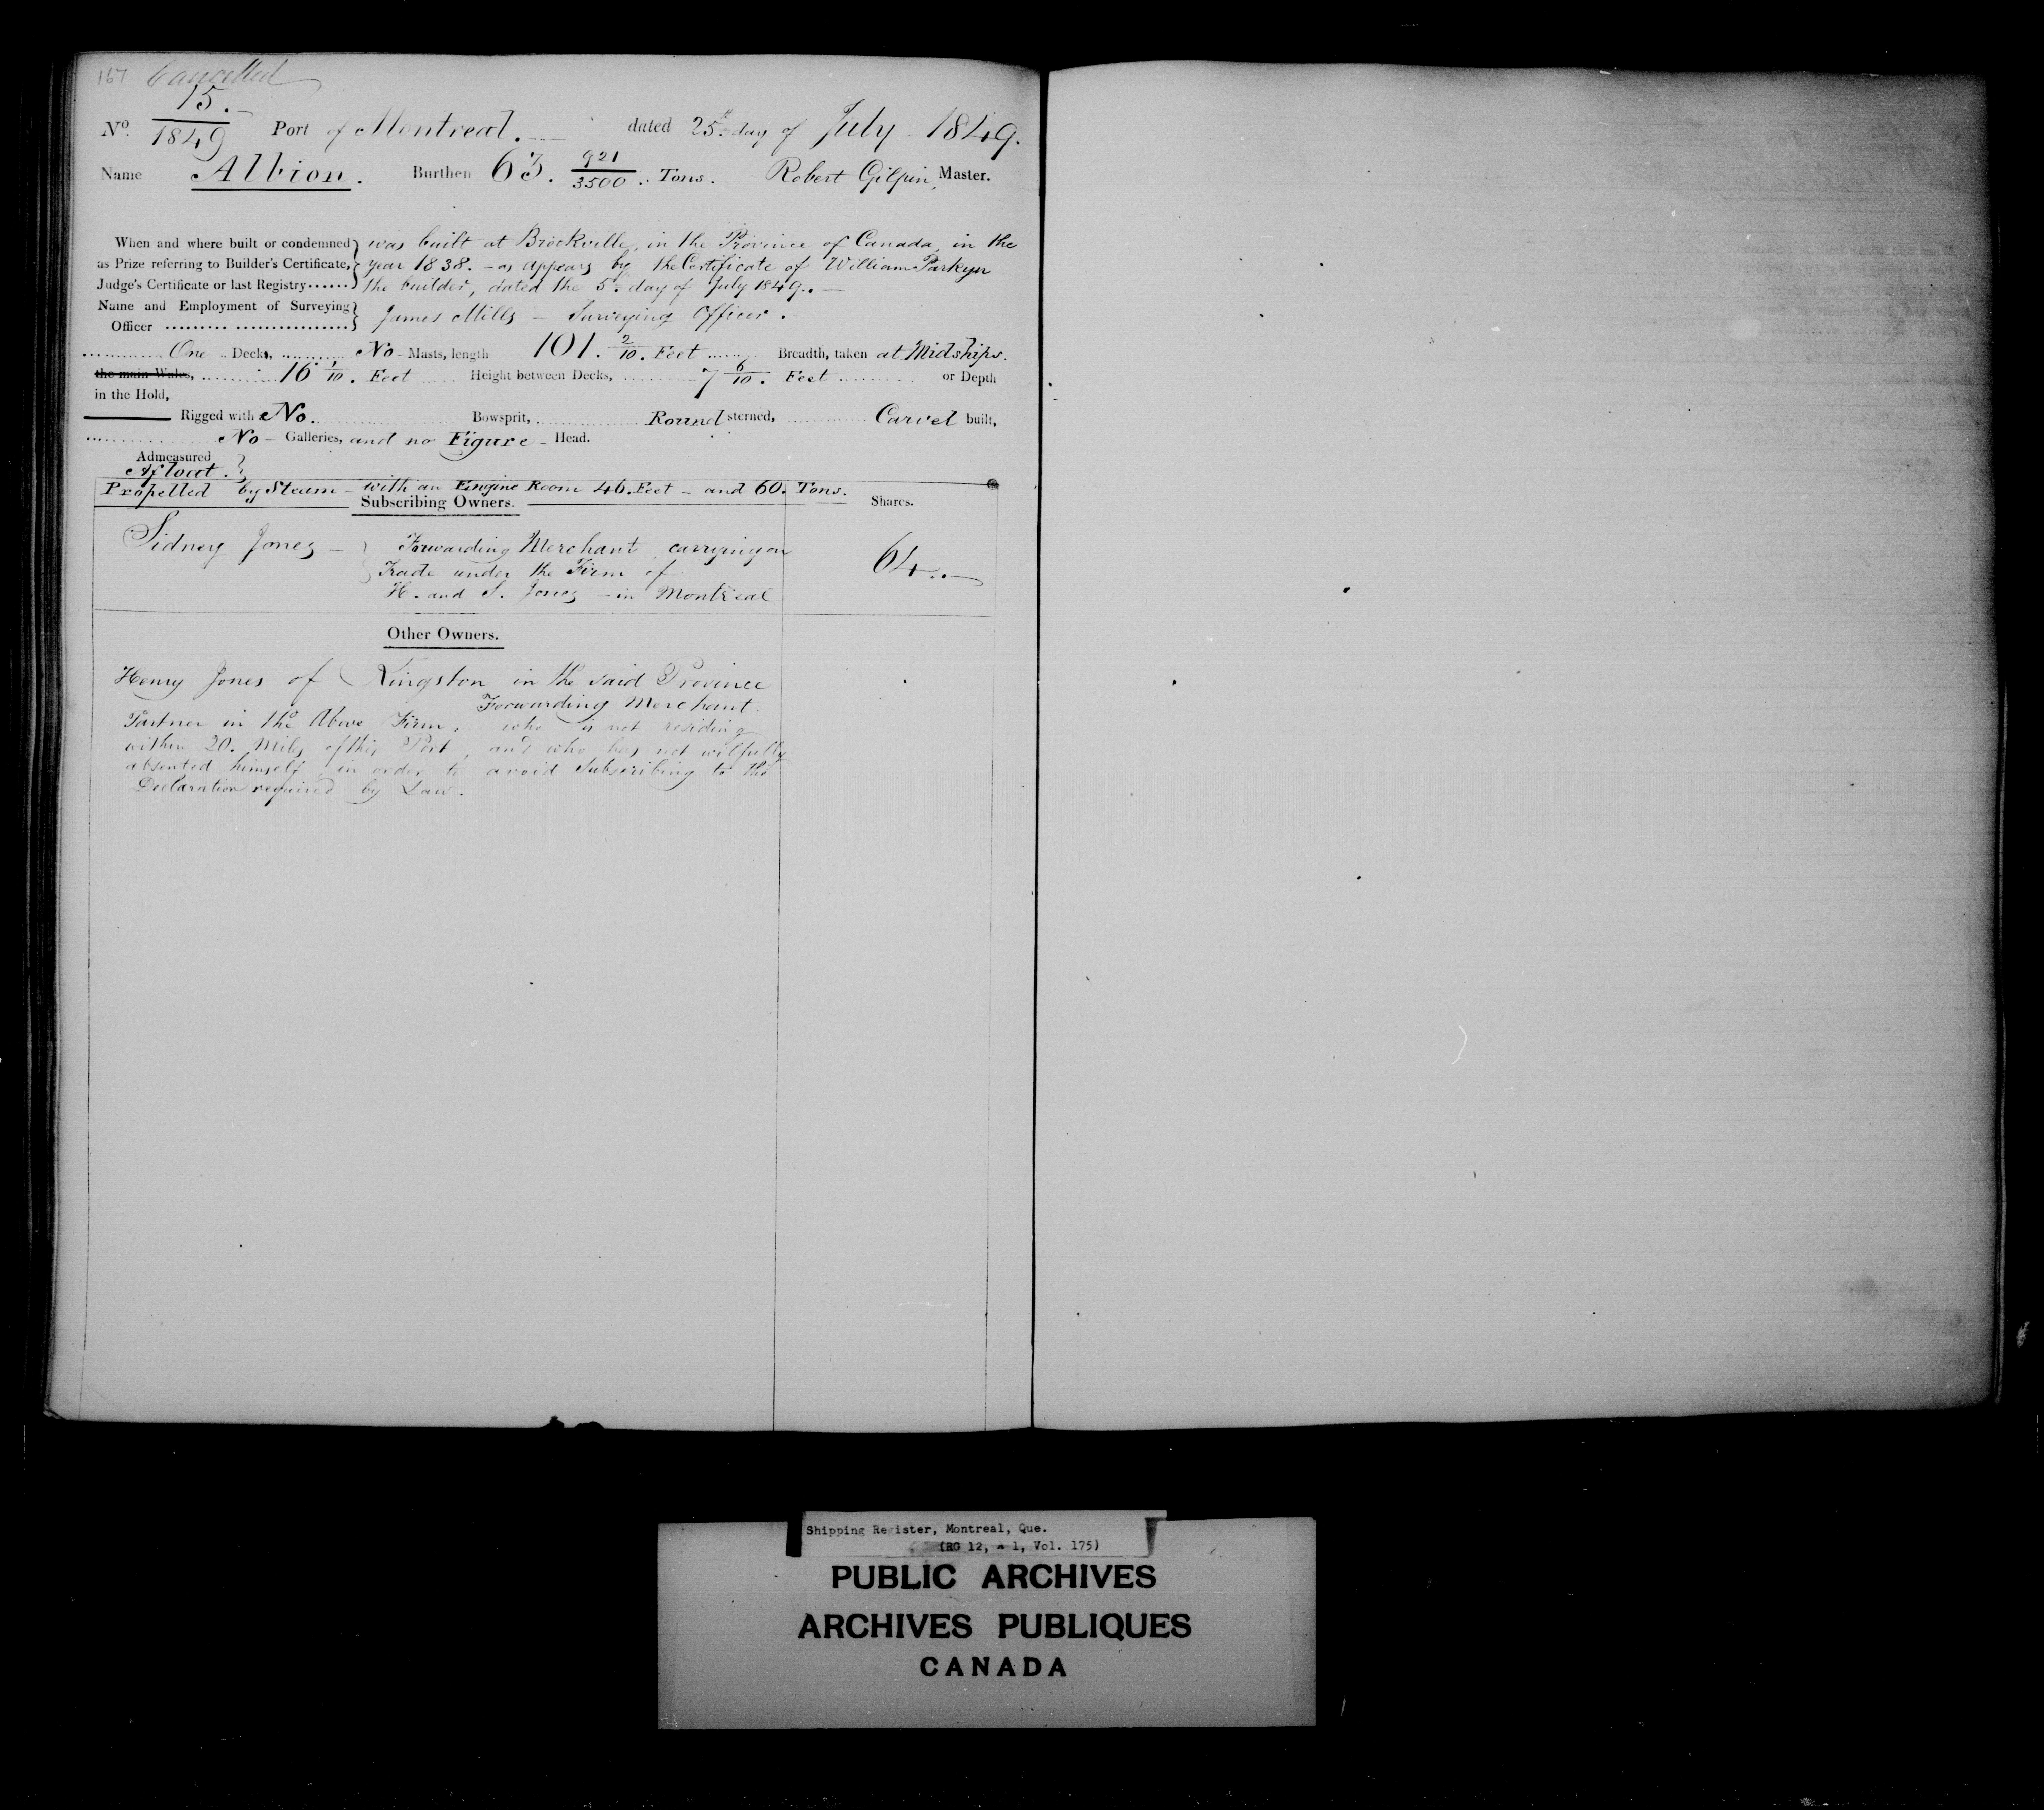 167 Cancelled
No. 15. / 1849 Port of Montreal. dated 25th day of July 1849.
Name Albion. Burthen 63. 921/3500 Tons. Robert Gilpin, Master.
When and where built or condemned } was built at Brockville, in the Province of Canada, in the
as Prize referring to Builder's Certificate, } year 1838. – as appears by the Certificate of William Parkyn
Judge's Certificate or last Registry...... } the builder, dated the 5th day of July 1849. –
Name and Employment of Surveying }
Officer ......... ................ } James Mills – Surveying Officer.
One Decks, No – Masts, length 101. 2/10. Feet Breadth, taken at Midships.
the main Wales, 16 1/10. Feet Height between Decks, 7 6/10. Feet or Depth
in the Hold,
Rigged with No. Bowsprit, Round sterned, Carvel built,
No – Galleries, and no Figure – Head.
Admeasured
Afloat. }
Propelled by Steam – with an Engine Room 46. Feet – and 60. Tons.
Subscribing Owners. Shares.
Sidney Jones – } Forwarding Merchant, carrying on
Trade under the Firm of 64..
H. and S. Jones – in Montreal
Other Owners.
Henry Jones of Kingston in the said Province
Forwarding Merchant.
Partner in the Above Firm, who is not residing
within 20. Miles of this Port, and who has not wilfully
absented himself, in order to avoid Subscribing to the
Declaration required by Law.
Shipping Register, Montreal, Que.
(RG 12, A 1, Vol. 175)
PUBLIC ARCHIVES
ARCHIVES PUBLIQUES
CANADA